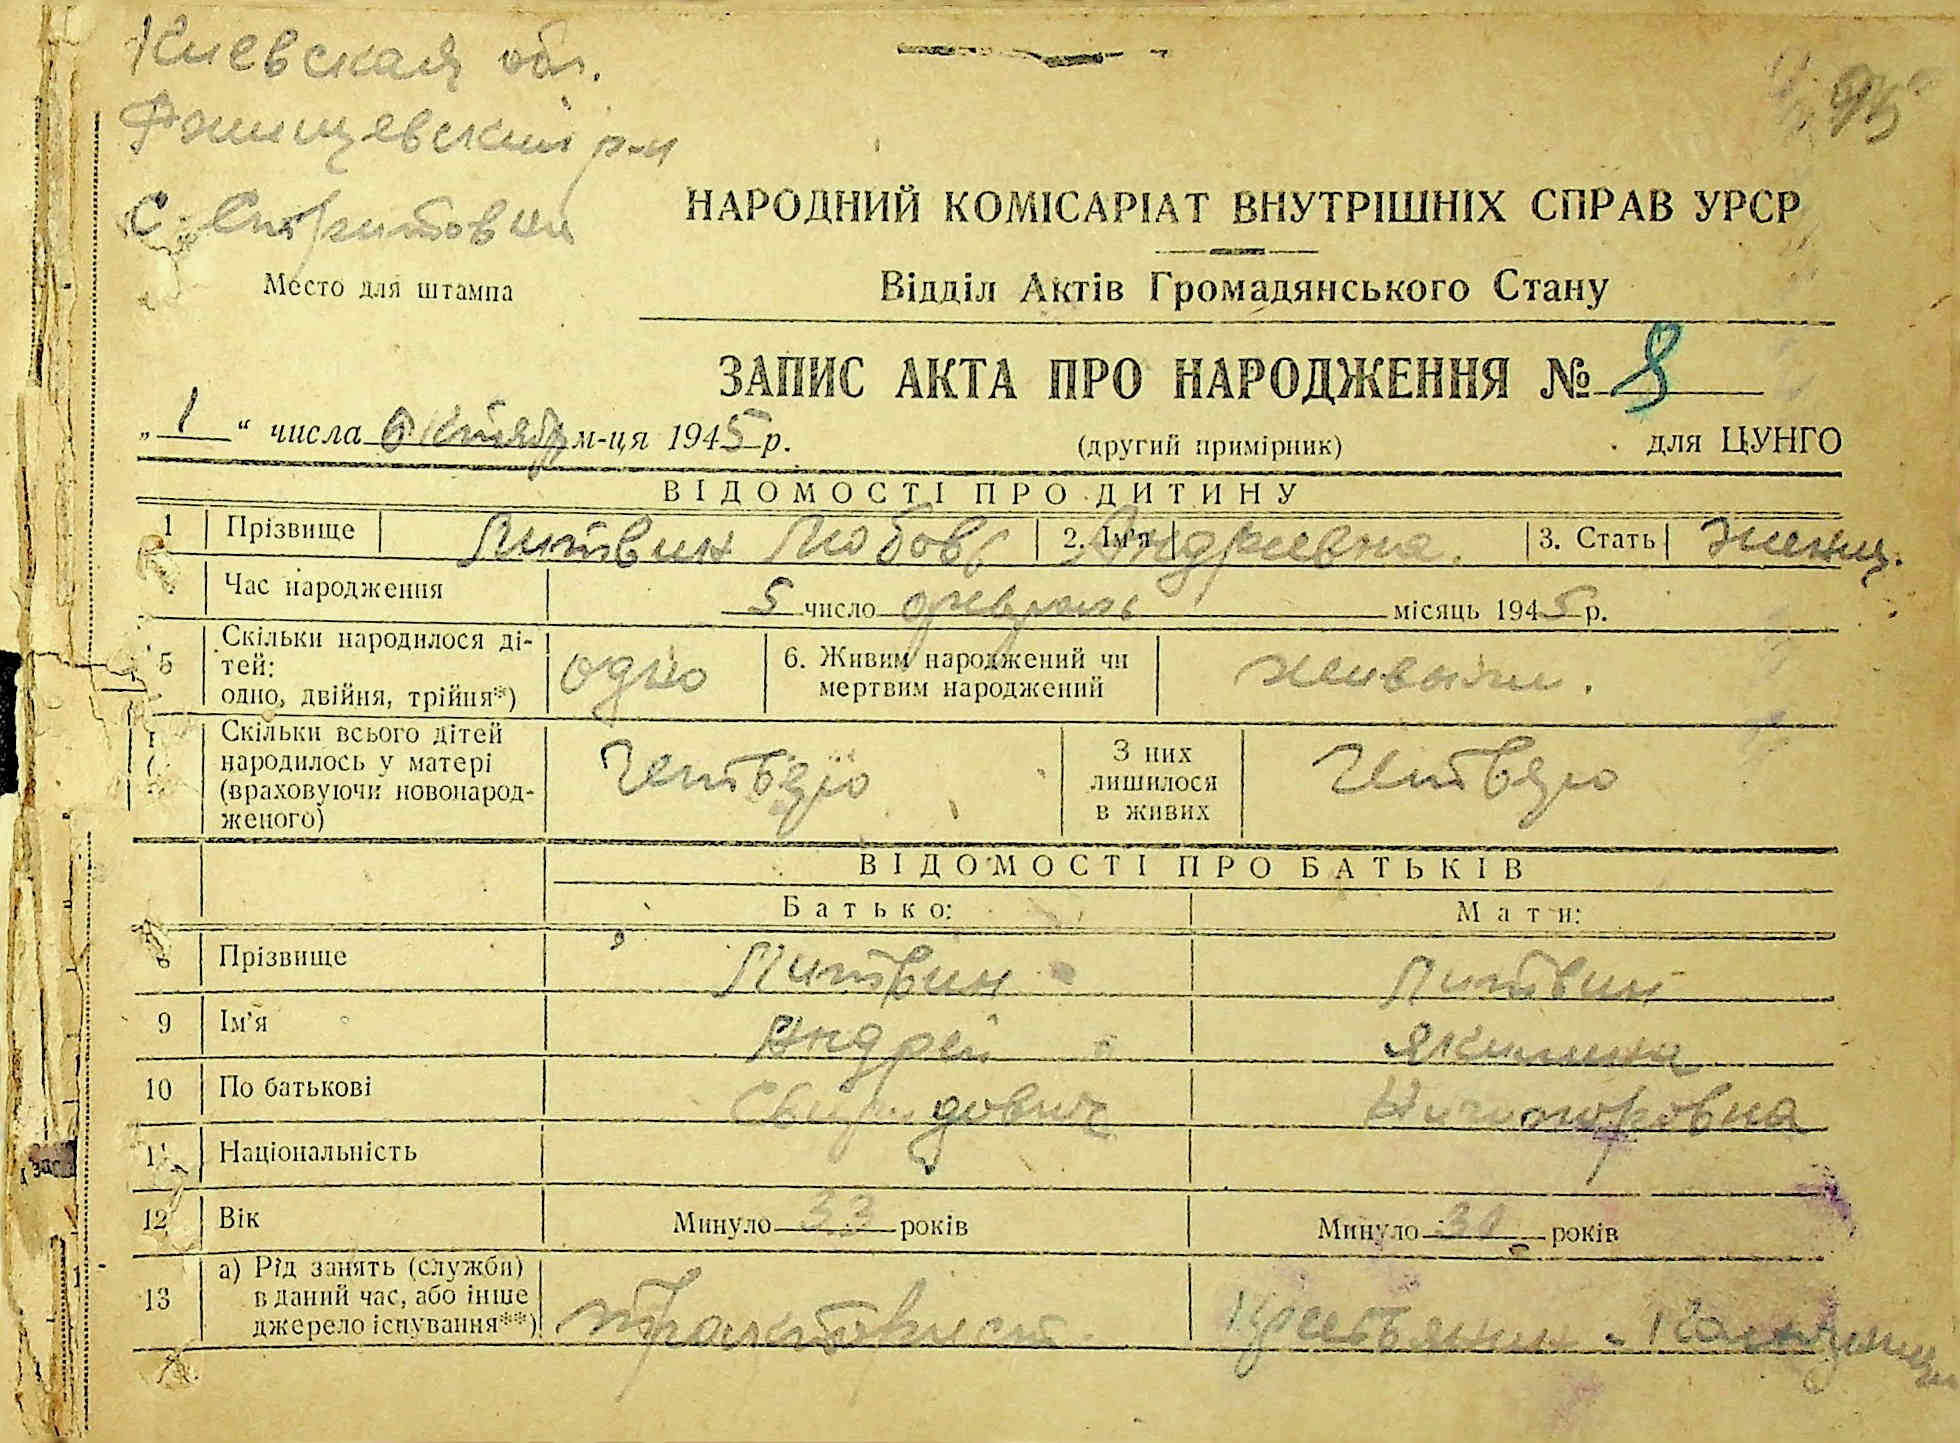 Киевская обл.
Фанищевский р-н
С.
95
НАРОДНИЙ КОМІСАРІАТ ВНУТРІШНІХ СПРАВ УРСР
Место для штампа
Відділ Актів Громадянського Стану
ЗАПИС АКТА ПРО НАРОДЖЕННЯ № 8
„ 1 “ числа Октября м-ця 1945 р.
(другий примірник)
для ЦУНГО
ВІДОМОСТІ ПРО ДИТИНУ
1 Прізвище Литвин Любовь 2. Ім'я Андреевна. 3. Стать женщ.
Час народження 5 число февраль місяць 1945 р.
5 Скільки народилося ді-
тей:
одно, двійня, трійня*) одно
6. Живим народжений чи
мертвим народжений живым.
Скільки всього дітей
народилось у матері
(враховуючи новонарод-
женого) Четверо
З них
лишилося
в живих Четверо
ВІДОМОСТІ ПРО БАТЬКІВ
Батько: Мати:
Прізвище Литвин Литвин
9 Ім'я Андрей Якилина
10 По батькові Свиридович Никифоровна
11 Національність
12 Вік Минуло 33 років Минуло років
13 а) Рід занять (служби)
в даний час, або інше
джерело існування**) тракторист Крестьянин -